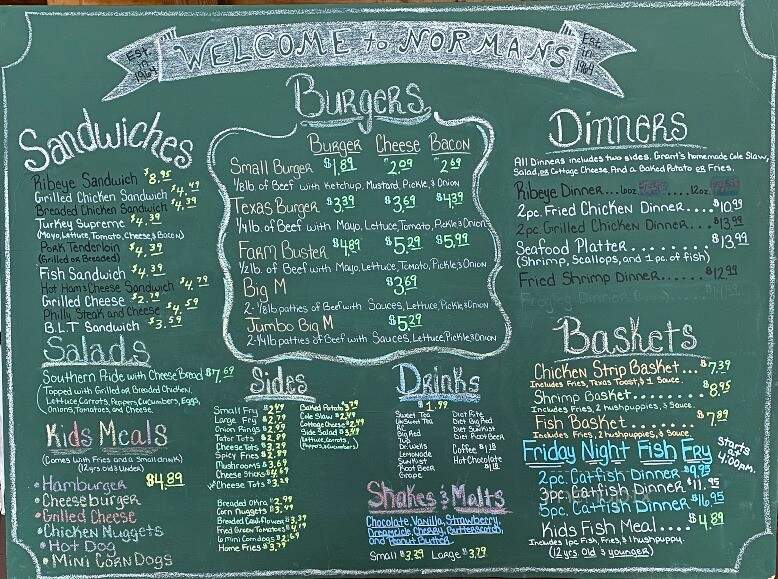 Est. in 1964
WELCOME to NORMANS
Est. in 1964
Sandwiches
Ribeye Sandwich $8.95
Grilled Chicken Sandwich $4.49
Breaded Chicken Sandwich $4.39
Turkey Supreme $4.39
(Mayo, Lettuce, Tomato, Cheese, & Bacon)
Pork Tenderloin $4.39
(Grilled or Breaded)
Fish Sandwich $4.39
Hot Ham & Cheese Sandwich $4.79
Grilled Cheese $2.79
Philly Steak and Cheese $4.59
B.L.T Sandwich $3.59
Salads
Southern Pride with Cheese Bread $7.69
(Topped with Grilled or Breaded Chicken,
Lettuce, Carrots, Peppers, Cucumbers, Eggs,
Onions, Tomatoes, and Cheese
Kids Meals
(Comes with Fries and a Small drink)
(12yrs Old & Under)
$4.89
• Hamburger
• Cheeseburger
• Grilled Cheese
• Chicken Nuggets
• Hot Dog
• Mini Corn Dogs
Burgers
Burger Cheese Bacon
Small Burger $1.89 $2.09 $2.69
1/8lb of Beef with Ketchup, Mustard, Pickle, & Onion
Texas Burger $3.39 $3.69 $4.39
1/4lb. of Beef with Mayo, Lettuce, Tomato, Pickle & Onion
Farm Buster $4.89 $5.29 $5.99
1/2lb. of Beef with Mayo, Lettuce, Tomato, Pickle, & Onion
Big M $3.69
2- 1/8lb patties of Beef with Sauces, Lettuce, Pickle, & Onion
Jumbo Big M $5.29
2-1/4lb patties of Beef with Sauces, Lettuce, Pickle, & Onion
Sides
Small Fry $2.49
Large Fry $2.79
Onion Rings $2.99
Tator Tots $2.89
Cheese Tots $3.29
Spicy Fries $2.89
Mushrooms $3.69
Cheese Sticks $4.69
Cheese Tots $3.29
Breaded Okra $2.99
Corn Nuggets $3.49
Breaded Cauliflower $3.39
Fried Green Tomatoes $4.49
6 Mini Corn Dogs $2.69
Home Fries $3.79
Baked Potato $3.29
Cole Slaw $2.49
Cottage Cheese $2.49
Side Salad $3.49
(Lettuce, Carrots,
Peppers & Cucumbers)
Drinks
$1.99
Sweet Tea
UnSweet Tea
Big Red
7up
Dr. Wells
Lemonade
Sunkist
Root Beer
Grape
Diet Rite
Diet Big Red
Diet Sunkist
Diet Root Beer
Coffee $1.19
Hot Chocolate
$1.19
Shakes & Malts
Chocolate, Vanilla, Strawberry,
Dreamsicle, Cherry, Butterscotch,
and Peanut Butter
Small $3.39 Large $3.79
Dinners
All Dinners includes two sides. Grant's homemade Cole Slaw,
Salad, or Cottage Cheese. And a Baked Potato or Fries.
Ribeye Dinner....
2pc. Fried Chicken Dinner.... $10.99
2pc. Grilled Chicken Dinner.... $13.99
Seafood Platter........ $13.99
(Shrimp, Scallops, and 1 pc. of fish)
Fried Shrimp Dinner...... $12.99
Baskets
Chicken Strip Basket... $7.39
Includes Fries, Texas Toast, & 1 Sauce.
Shrimp Basket....... $8.95
Includes Fries, 2 hushpuppies, & Sauce.
Fish Basket........ $7.89
Includes Fries, 2 hushpuppies, & Sauce
Friday Night Fish Fry
Starts at 4:00am.
2pc. Catfish Dinner $9.95
3pc. Catfish Dinner $11.95
5pc. Catfish Dinner $16.95
Kids Fish Meal.... $4.89
Includes 1pc. Fish, Fries, & 1 hushpuppy.
(12yrs Old & younger)